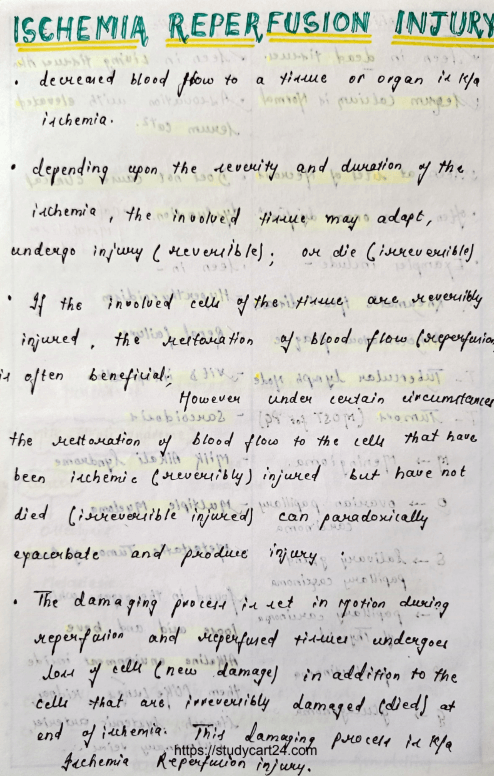 ISCHEMIA REPERFUSION INJURY
• decreased blood flow to a tissue or organ is K/a
ischemia.
• depending upon the severity and duration of the
ischemia, the involved tissue may adapt,
undergo injury (reversible); or die (irreversible)
• If the involved cells of the tissue are reversibly
injured, the restoration of blood flow (reperfusion
is often beneficial;
However under certain circumstances
the restoration of blood flow to the cells that have
been ischemic (reversibly) injured but have not
died (irreversible injured) can paradoxically
exacerbate and produce injury.
• The damaging process is set in Motion during
reperfusion and reperfused tissues undergoes
loss of cells (new damage) in addition to the
cells that are irreversibly damaged (died) at
end of ischemia. This damaging process is K/a
https://studycart24.com
Ischemia Reperfusion injury.